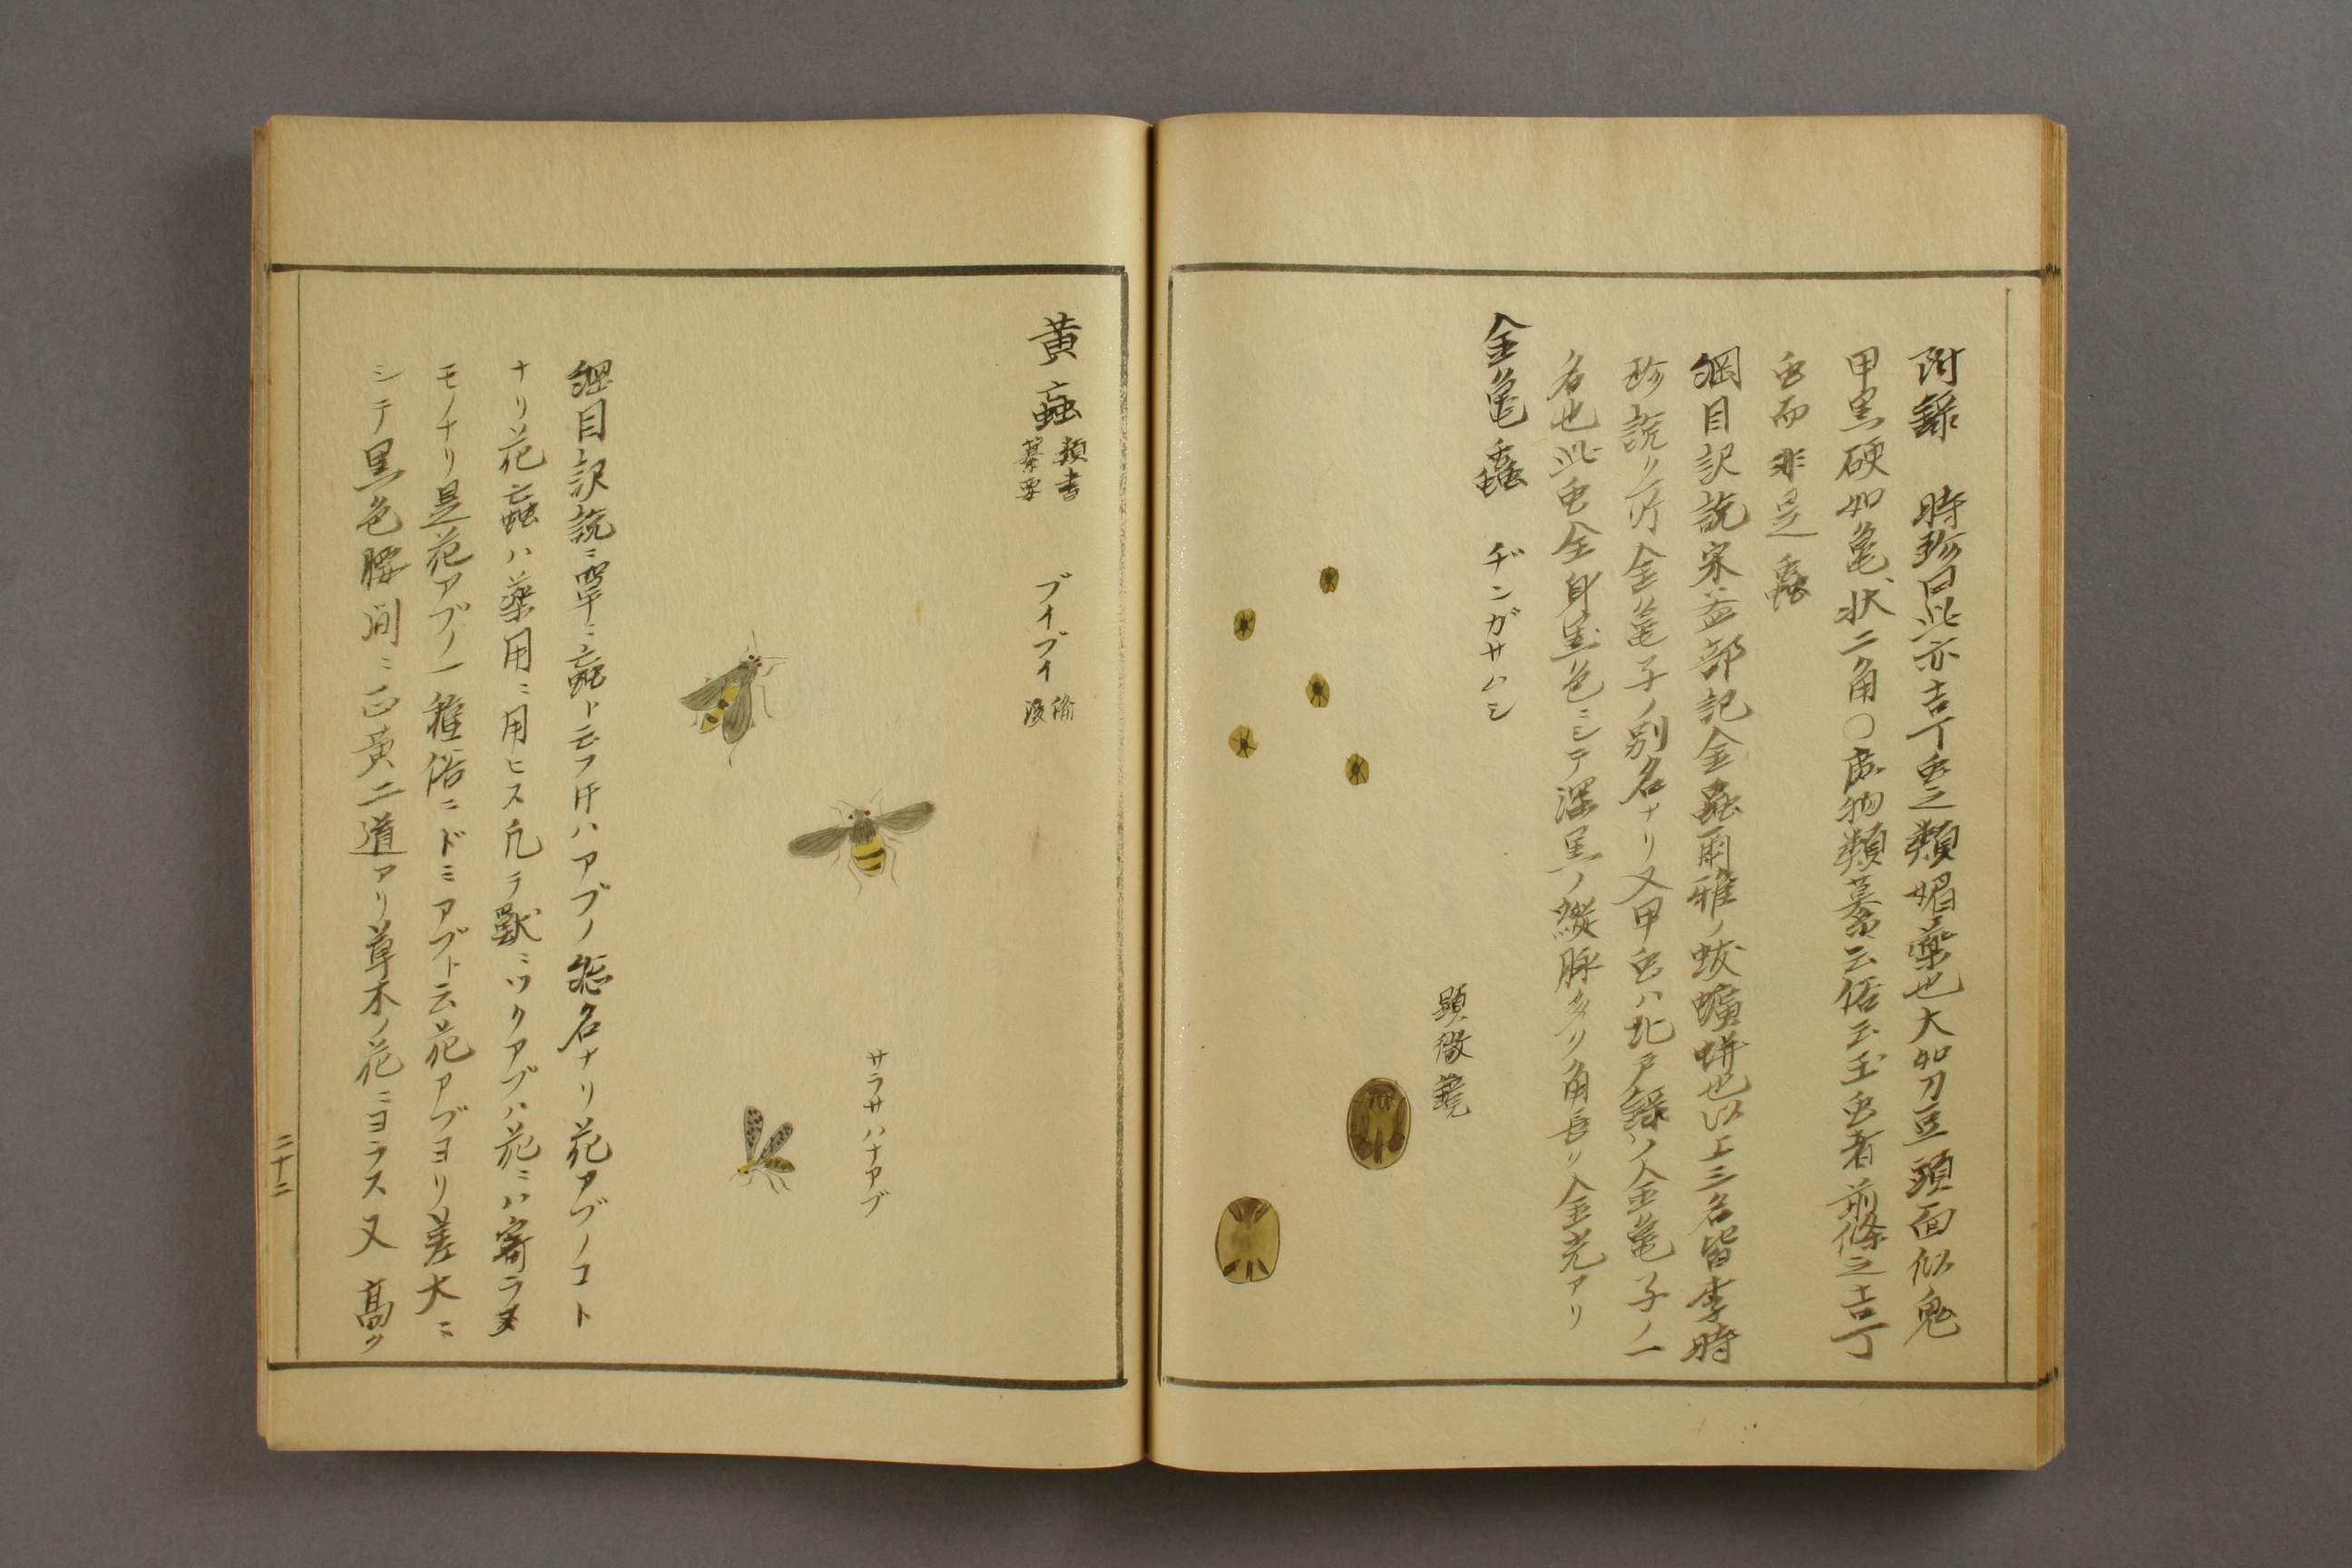 附錄 時珍曰此亦吉丁虫之類媚藥也大如刀豆頭面似鬼
甲黒硬如亀状二角〇庶物類纂云俗云玉虫者前條之吉丁
虫而非是蟲
綱目訳説宋益部記金蟲爾雅ノ蛂蟥蛢也以上三名皆李時
珍説ク所金亀子ノ別名ナリ又甲虫ハ北戸錄ノ金亀子ノ一
名也此虫全身黒色ニシテ深黒ノ縦脉多リ角長ク金光アリ
金亀蟲 ヂンガサムシ
顕微鏡
黄䖟 類書纂要 ブイブイ
サラサハナアブ
綱目訳説ニ單ニ䖟ト云フ時ハアブノ總名ナリ花アブノコト
ナリ花䖟ハ薬用ニ用ヒス凡ラ獸ニツクアブハ花ニハ寄ラヌ
モノナリ是花アブノ一種俗ニドミアブト云花アブヨリ差大ニ
シテ黒色腰间ニ正黄二道アリ草木ノ花ニヨラス又高ク
二十二